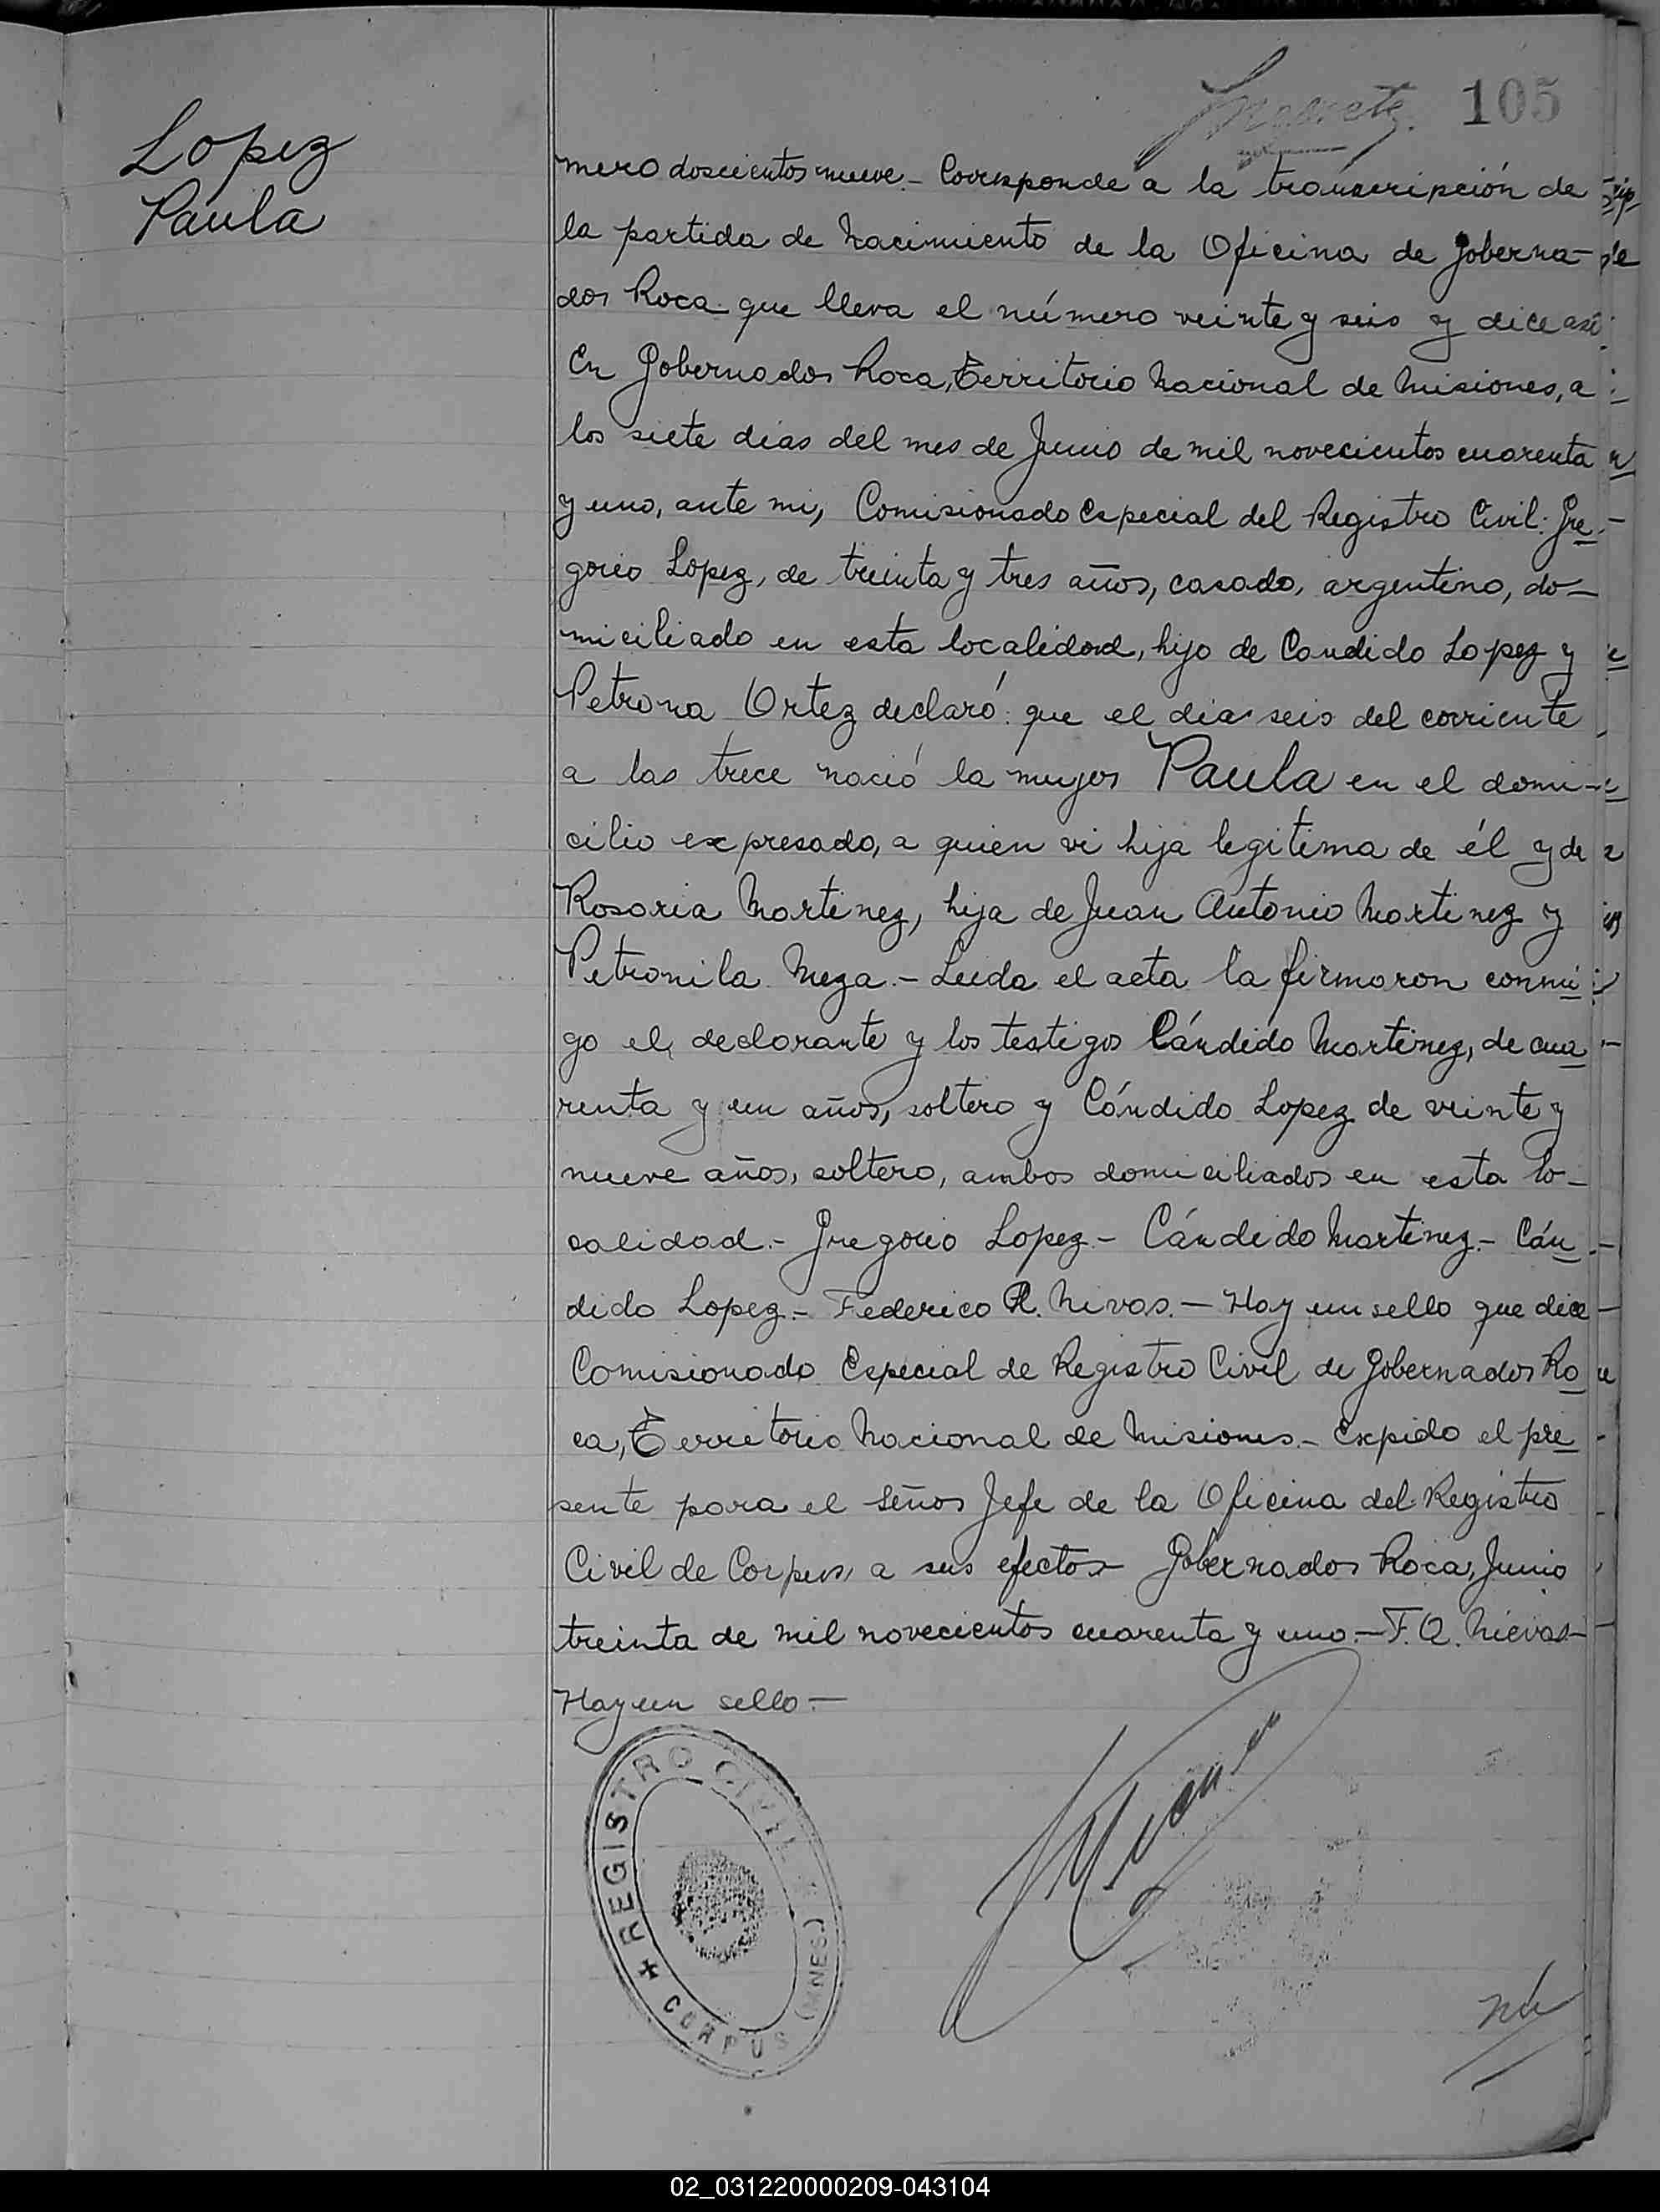 105
Lopez
Paula
mero doscientos nueve.- Corresponde a la transcripción de
la partida de nacimiento de la Oficina de Goberna-
dor Roca que lleva el número veinte y seis y dice así:
En Gobernador Roca, Territorio Nacional de Misiones, a
los siete dias del mes de Junio de mil novecientos cuarenta
y uno, ante mi, Comisionado Especial del Registro Civil: Gre
gorio Lopez, de treinta y tres años, casado, argentino, do-
miciliado en esta localidad, hijo de Candido Lopez y
Petrona Ortez declaró: que el dia seis del corriente
a las trece nació la mujer Paula en el domi-
cilio expresado, a quien vi hija legitima de él y de
Rosaria Martinez, hija de Juan Antonio Martinez y
Petronila Meza.- Leida el acta la firmaron conmi
go el declarante y los testigos Cándido Martinez, de cua
renta y un años, soltero y Cándido Lopez de veinte y
nueve años, soltero, ambos domiciliados en esta lo-
calidad.- Gregorio Lopez.- Cándido Martinez.- Cán
dido Lopez.- Federico R. Nivas.- Hay un sello que dice
Comisionado Especial de Registro Civil de Gobernador Ro
ca, Territorio Nacional de Misiones.- Expido el pre
sente para el Señor Jefe de la Oficina del Registro
Civil de Corpus, a sus efectos- Gobernador Roca, Junio
treinta de mil novecientos cuarenta y uno.- F. Q. Nievas-
Hay un sello-
REGISTRO CIVIL
CORPUS (MNES)
nú
02_031220000209-043104